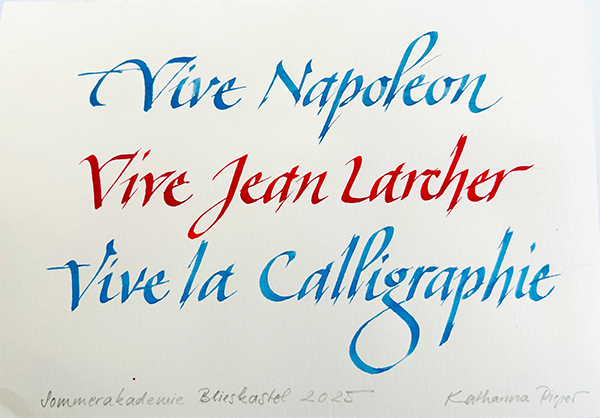 Vive Napoléon
Vive Jean Larcher
Vive la Calligraphie
Sommerakademie Blieskastel 2025 Katharina Pieper